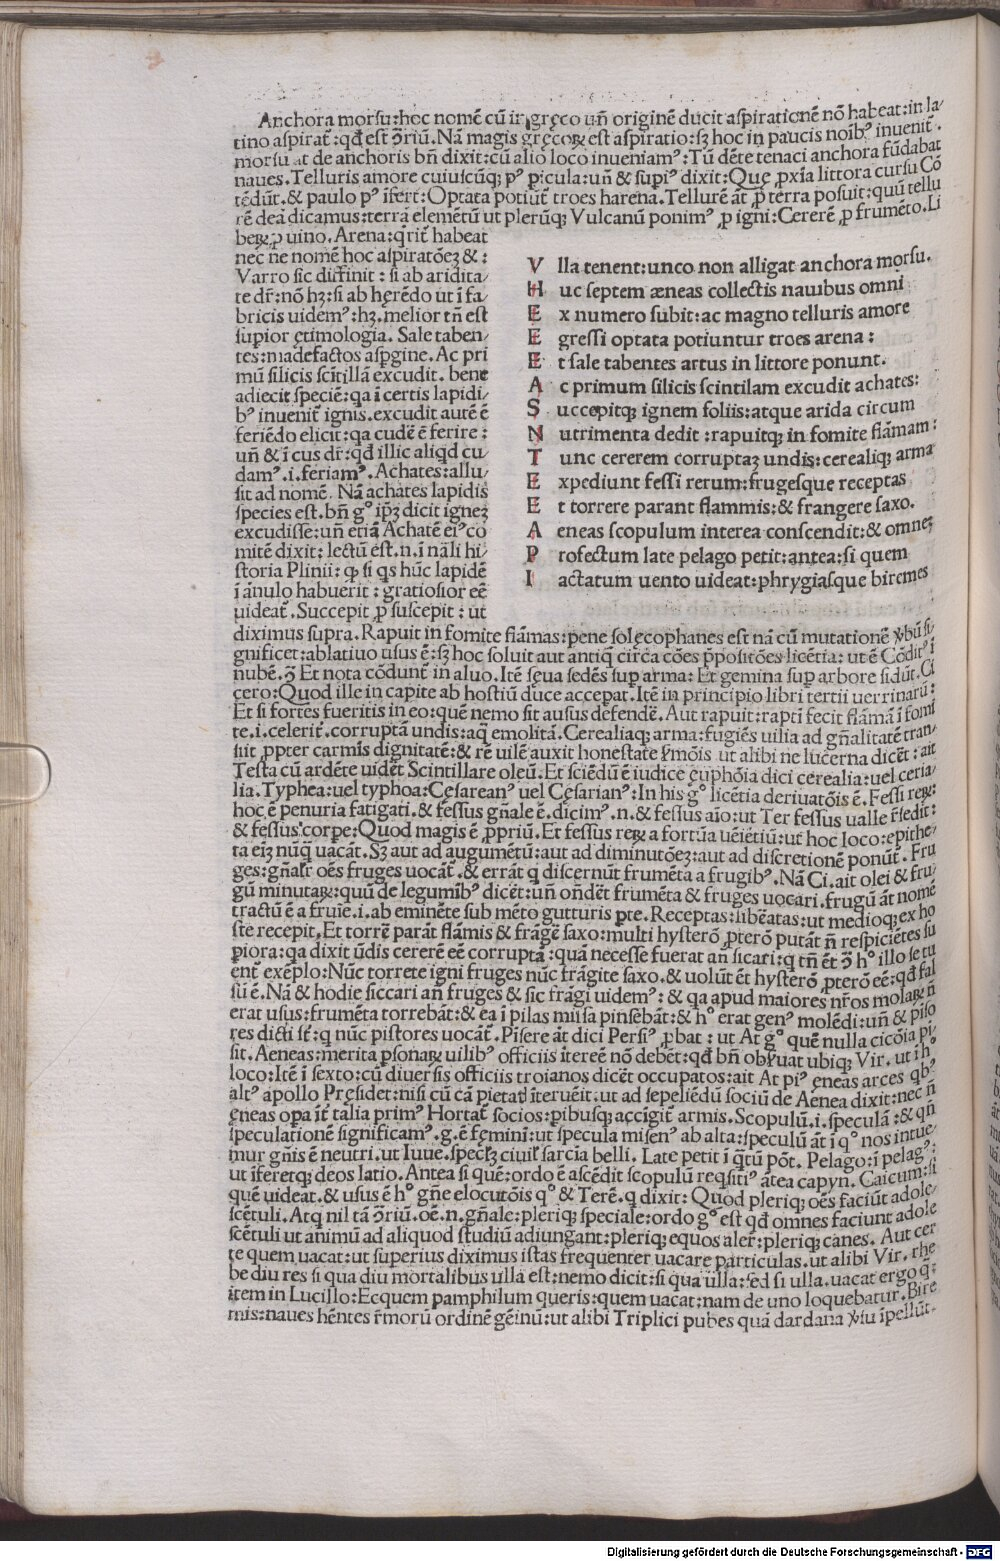 Anchora morsu:hoc nomē cū in gręco uñ originē ducit aspirationē nō habeat:in la/
tino aspirat̄:qđ est ↄ̄riū.Nā magis gręcoꝝ est aspiratio:sꝫ hoc in paucis noīb⁹ inuenit̄.
morsu at de anchoris bñ dixit:cū alio loco inueniam⁹:Tū dēte tenaci anchora fūdabat
naues.Telluris amore cuiuscūqꝫ p⁹ pericula:uñ & supi⁹ dixit:Quę ꝓxīa littora cursu Cō
tēdūt.& paulo p⁹ īfert:Optata potiūt̄ troes harena.Tellurē āt ꝓ terra posuit:quū tellu
rē deā dicamus:terrā elemētū ut plerūqꝫ Vulcanū ponim⁹ ꝓ igni:Cererē ꝓ frumēto.Li
beꝝ ꝓ uino.Arena:q̄rit̄ habeat
nec ne nomē hoc aspiratōeꝫ &:
Varro sic diffinit:si ab aridita/
te dr̄:nō hꝫ:si ab hęrēdo ut ī fa/
bricis uidem⁹:hꝫ.melior tñ est
supior etimologia.Sale taben/
tes:madefactos aspgine.Ac pri
mū silicis scītillā excudit.bene
adiecit speciē:qa ī certis lapidi/
b⁹ inuenit̄ ignis.excudit autē ē
feriēdo elicit:qa cudē ē ferire:
uñ & ī cus dr̄:qđ illic aliqđ cu
dam⁹.i.feriam⁹.Achates:allu/
sit ad nomē. Nā achates lapidis
species est.bñ g° ip̄ꝫ dicit igneꝫ
excudisse:uñ etiā Achatē ei⁹ co
mitē dixit:lectū est.n.ī nāli hi/
storia Plinii:ꝙ si qs hūc lapidē
ī ānulo habuerit:gratiosior eē
uideat̄.Succepit ꝓ suscepit:ut
V lla tenent:unco non alligat anchora morsu.
H uc septem æneas collectis nauibus omni
E x numero subit:ac magno telluris amore
E gressi optata potiuntur troes arena:
E t sale tabentes artus in littore ponunt.
A c primum silicis scintilam excudit achates:
S uccepitqꝫ ignem foliis:atque arida circum
N utrimenta dedit:rapuitqꝫ in fomite flāmam:
T unc cererem corruptaꝫ undis:cerealiqꝫ arma
E xpediunt fessi rerum:frugesque receptas
E t torrere parant flammis:& frangere saxo.
A eneas scopulum interea conscendit:& omneꝫ
P rofectum late pelago petit:antea:si quem
I actatum uento uideat:phrygiasque biremes
diximus supra.Rapuit in fomite flāmas:pene solęcophanes est nā cū mutationē ꝟbū si/
gnificet:ablatiuo usus ē:sꝫ hoc soluit aut antiq̄ circa cōes p̄positōes licētia:ut ē Cōdit⁹ ī
nubē.ↄ̄ Et nota cōdunt̄ in aluo.Itē sęua sedēs sup arma:Et gemina sup arbore sidūt.Ci
cero:Quod ille in capite ab hostiū duce accepat.Itē in principio libri tertii uerrinarū:
Et si fortes fueritis in eo:quē nemo sit ausus defendē.Aut rapuit:raptī fecit flāmā ī fomi
te.i.celerit̄.corruptā undis:aq̄ emolitā.Cerealiaqꝫ arma:fugiēs uilia ad gn̄alitatē tran/
siit ꝓpter carmis dignitatē:& rē uilē auxit honestate s̄mōis ut alibi ne lucerna dicēt:ait
Testa cū ardēte uidēt̄ Scintillare oleū.Et sciēdū ē iudice euphōia dici cerealia:uel ceria/
lia.Typhea:uel typhoa:Cęsarean⁹ uel Cęsarian⁹:In his g° licētia deriuatōis ē.Fessi reꝝ:
hoc ē penuria fatigati.& fessus gn̄ale ē.dicim⁹.n.& fessus aīo:ut Ter fessus ualle r̄sedit:
& fessus corpe:Quod magis ē ꝓpriū.Et fessus reꝝ a fortūa uēiētiū:ut hoc loco:epithe/
ta eīꝫ nūq̄ uacāt.Sꝫ aut ad augumētū:aut ad diminutōeꝫ:aut ad discretionē ponūt̄.Fru
ges:gn̄alr̄ oēs fruges uocāt̄.& errāt q discernūt frumēta a frugib⁹.Nā Ci.ait olei & fru/
gū minutaꝝ:quū de legumīb⁹ dicēt:uñ oñdēt̄ frumēta & fruges uocari.frugū āt nomē
tractū ē a fruīe.i.ab eminēte sub mēto gutturis ꝑte.Receptas:libēatas:ut medioqꝫ ex ho
ste recepit.Et torrē parāt flāmis & frāgē saxo:multi hysterō ꝓterō putāt ñ respiciētes su
piora:qa dixit ūdis cererē eē corruptā:quā necesse fuerat añ sicari:q tñ ēt ↄ̄ h° illo se tu
ent̄ exēplo:Nūc torrete igni fruges nūc frāgite saxo.& uolūt ēt hysterō ꝓterō eē:qđ fal
sū ē.Nā & hodie siccari añ fruges & sic frāgi uidem⁹:& qa apud maiores nr̄os molaꝝ ñ
erat usus:frumēta torrebāt:& ea ī pilas missa pinsebāt:& h° erat gen⁹ molēdi:uñ & pīso
res dicti st̄:q nūc pistores uocāt̄.Pīsere āt dici Persi⁹ ꝓbat:ut At g° quē nulla cicōia pī
sit.Aeneas:merita psonaꝝ uilib⁹ officiis īterēē nō debēt:qđ bñ obs̄uat ubiqꝫ Vir.ut ī h°
loco:Itē ī sexto:cū diuersis officiis troianos dicēt occupatos:ait At pi⁹ ęneas arces qb⁹
alt⁹ apollo Pręsidet:nisi cū cā pietat̄ īteruēit.ut ad sepeliēdū sociū de Aenea dixit:nec ñ
ęneas opa īt̄ talia prim⁹ Hortat̄ socios:pibusqꝫ accīgit̄ armis.Scopulū.i.speculā:& qñ
speculationē significam⁹.g.ē fęminī:ut specula misen⁹ ab alta:speculū āt ī q° nos intue/
mur gñis ē neutri.ut Iuue.specłꝫ ciuił sarcīa belli.Late petit ī q̄tū pōt.Pelago:ī pelag⁹:
ut īferetqꝫ deos latio.Antea si quē:ordo ē ascēdit scopulū reqsīti⁹ ātea capyn.Caicum:si
quē uideat.& usus ē h° gn̄e elocutōis q° & Terē.q dixit:Quod pleriqꝫ oēs faciūt adole/
scētuli.Atqꝫ nil tā ↄ̄riū.oē.n.gn̄ale:pleriqꝫ speciale:ordo g° est qđ omnes faciunt adole
scētuli ut animū ad aliquod studiū adiungant:pleriqꝫ equos aler̄:pleriqꝫ canes. Aut cer
te quem uacat:ut superius diximus istas frequenter uacare particulas.ut alibi Vir.rhe
be diu res si qua diu mortalibus ulla est:nemo dicit:si qua ulla:sed si ulla.uacat ergo q̄:
item in Lucillo:Ecquem pamphilum queris:quem uacat:nam de uno loquebatur.Bire
mis:naues hēntes r̄morū ordinē gēinū:ut alibi Triplici pubes quā dardana ꝟsu īpellūt.
Digitalisierung gefördert durch die Deutsche Forschungsgemeinschaft - DFG